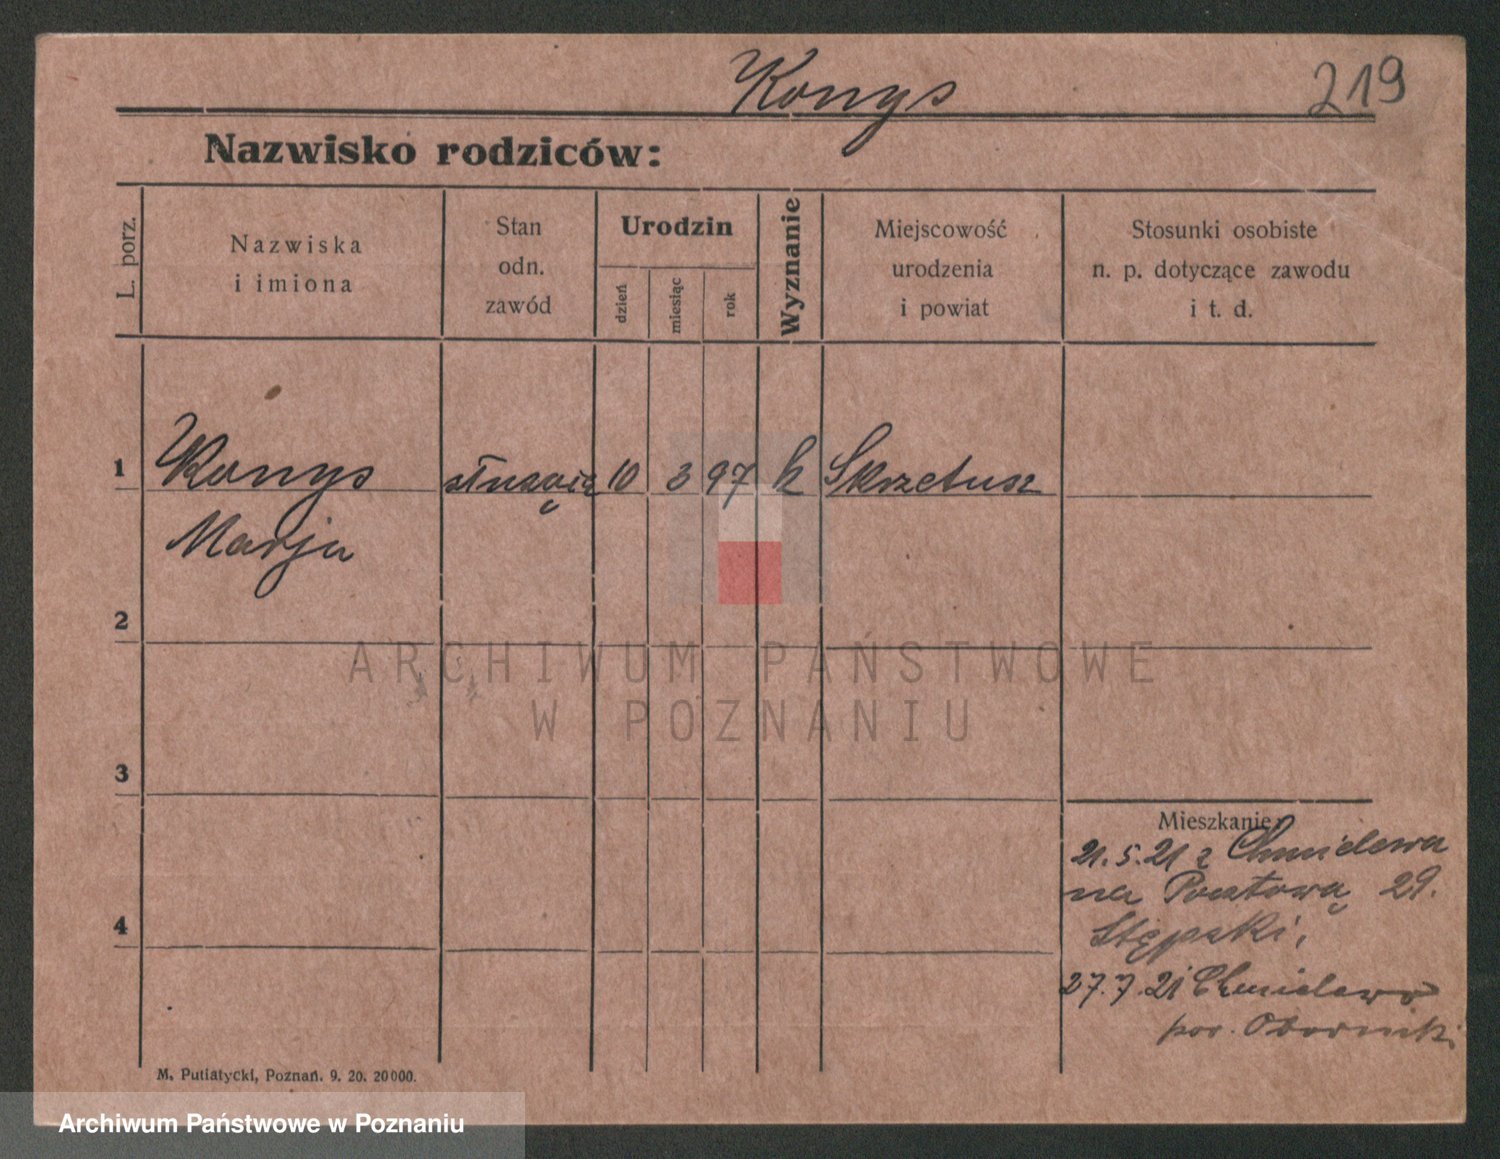 Konys
219
Nazwisko rodziców:
L. porz.
Nazwiska
i imiona
Stan
odn.
zawód
Urodzin
dzień
miesiąc
rok
Wyznanie
Miejscowość
urodzenia
i powiat
Stosunki osobiste
n. p. dotyczące zawodu
i t. d.
1
Konys służąca 10 3 97 k Skrzetusz
Marja
2
ARCHIWUM PAŃSTWOWE
W POZNANIU
3
Mieszkanie:
21.5.21 z Chmielewa
na Pocztową 29.
4
27.7.21 Chmielewo
pow. Oborniki
M. Putiatycki, Poznań. 9. 20. 20000.
Archiwum Państwowe w Poznaniu